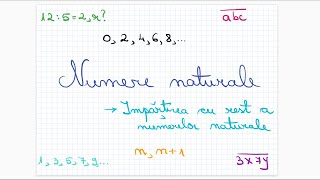 12:5=2,r?
abc
0, 2, 4, 6, 8,...
Numere naturale
→ Împărțirea cu rest a
numerelor naturale
1, 3, 5, 7, 9...
n, n+1
3x7y